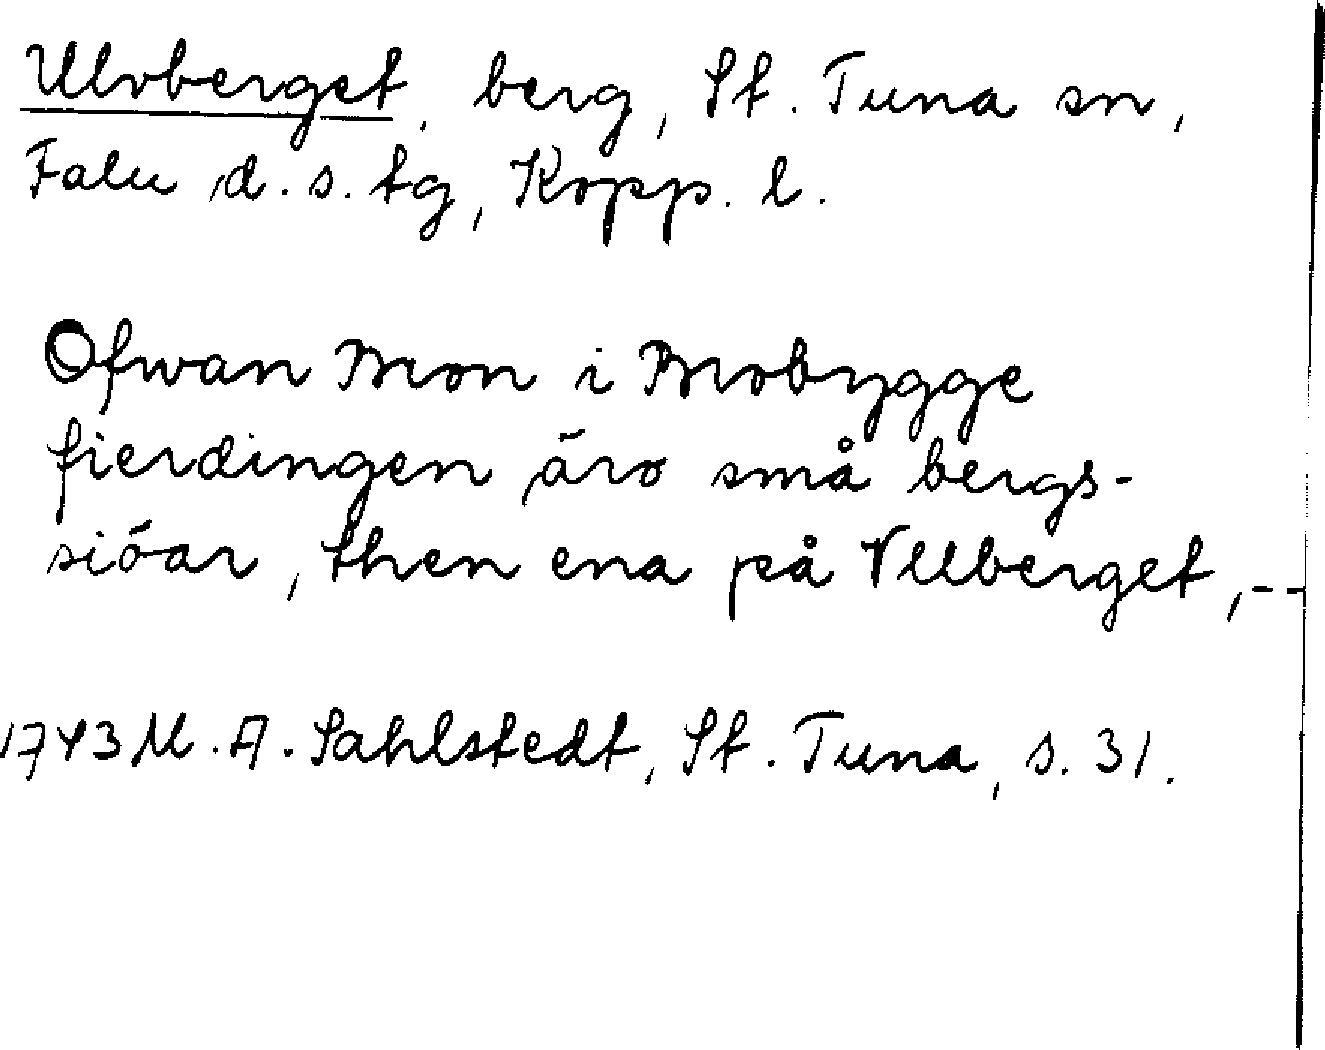 Ulvberget, berg, St. Tuna sn,
Falu d. s. tg, Kopp. l.
Ofwan Mon i Mobygge
fierdingen äro små bergs-
siöar, then ena på Vllberget, --
1743 M. A. Sahlstedt, St. Tuna, s. 31.